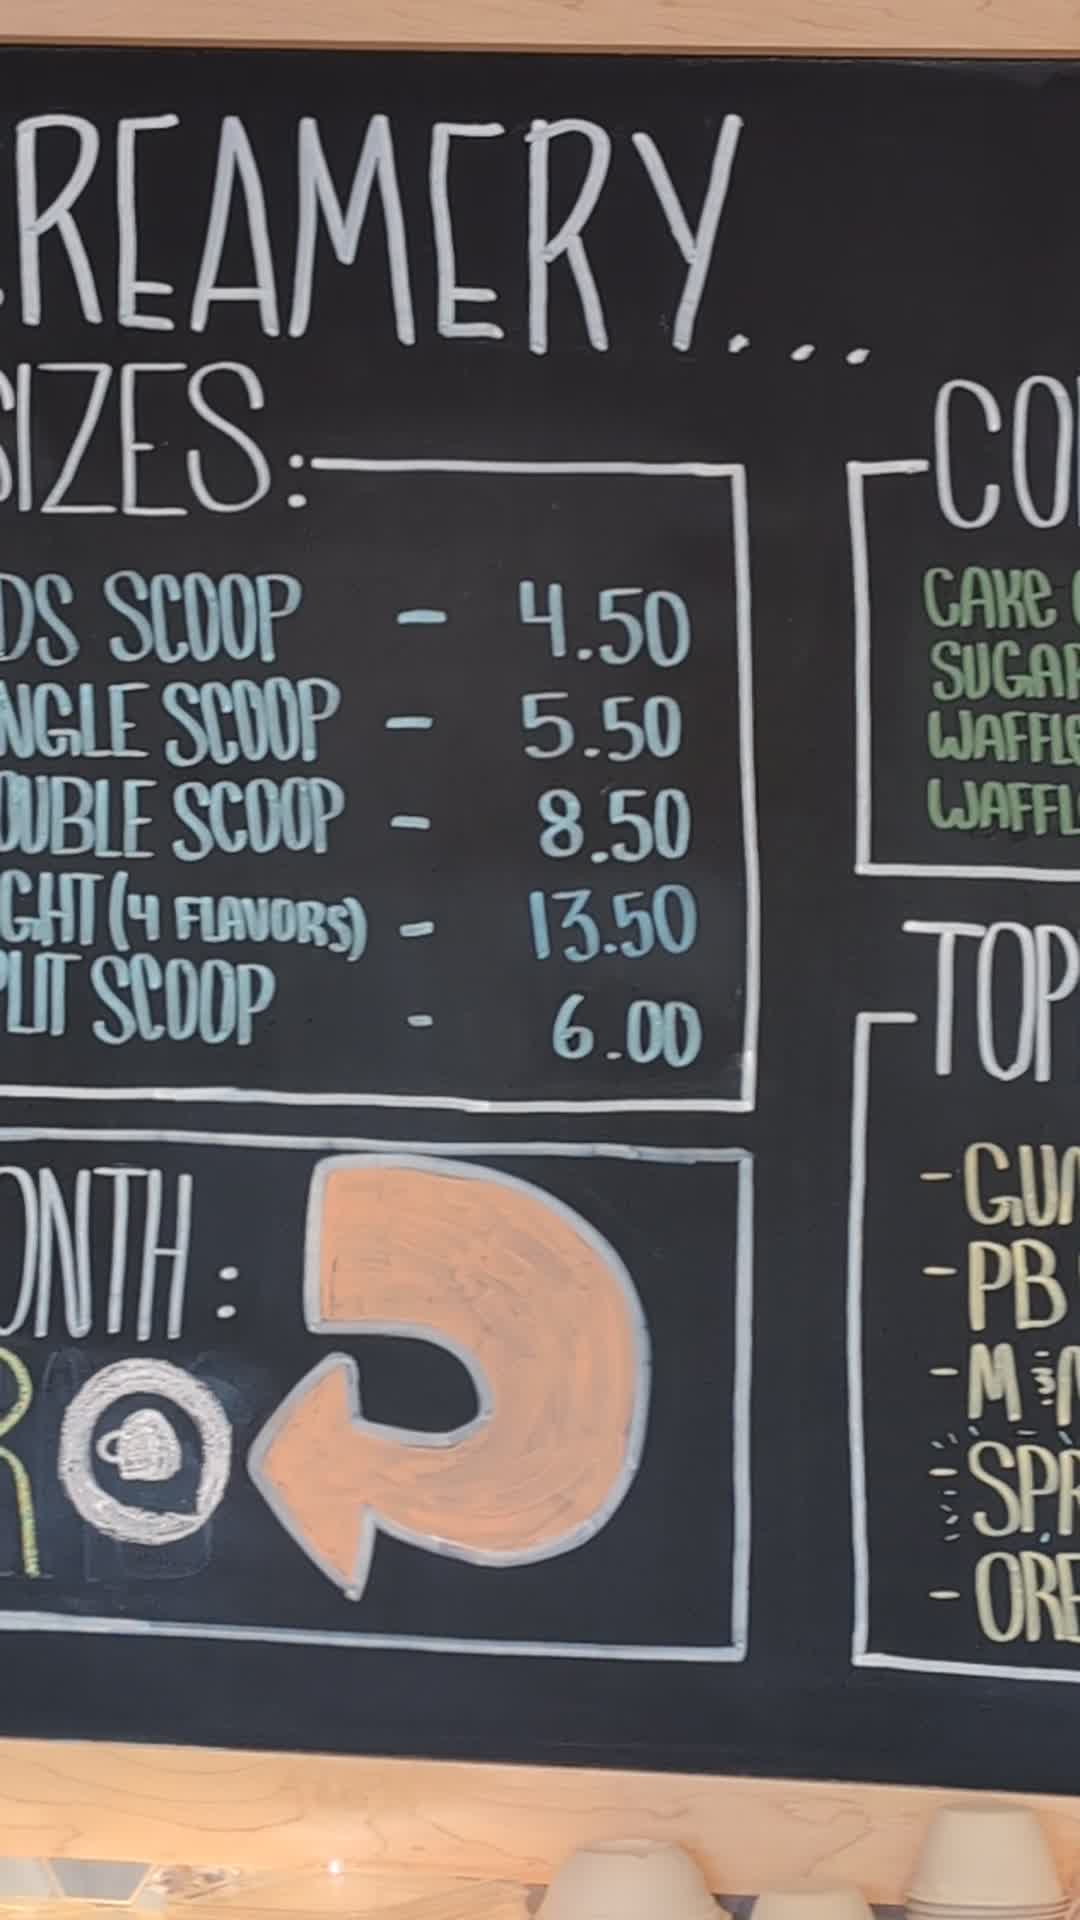 CREAMERY...
SIZES:
DS SCOOP - 4.50
NGLE SCOOP - 5.50
OUBLE SCOOP - 8.50
GHT (4 FLAVORS) - 13.50
PLIT SCOOP - 6.00
ONTH:
R
CO
CAKE
SUGAR
WAFFLE
WAFFL
TOP
- GU
- PB
- M
SPR
- ORE